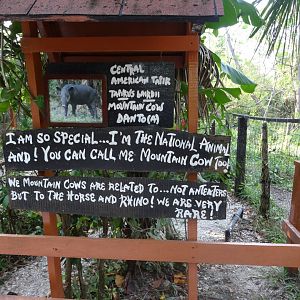 CENTRAL
AMERICAN TAPIR
TAPIRUS BAIRDII
MOUNTAIN COW
DANTO(A)
I AM SO SPECIAL...I'M THE NATIONAL ANIMAL
AND! YOU CAN CALL ME MOUNTAIN COW TOO!
WE MOUNTAIN COWS ARE RELATED TO... NOT ANTEATERS
BUT TO THE HORSE AND RHINO! WE ARE VERY
RARE!